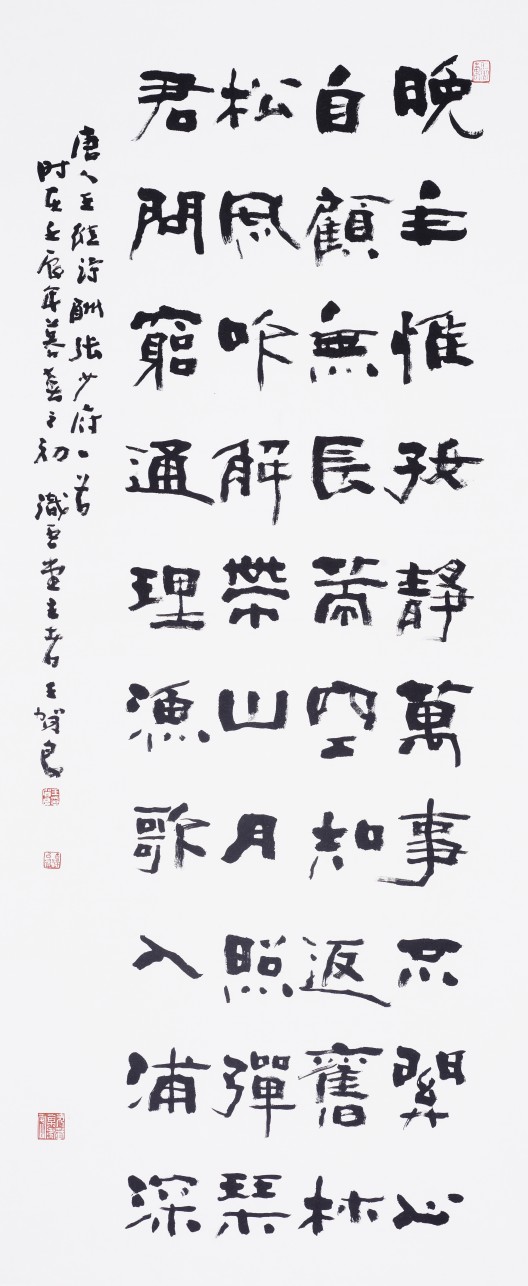 晚年惟好靜萬事不關心
自顧無長策空知返舊林
松風吹解帶山月照彈琴
君問窮通理漁歌入浦深
唐人王維詩酬張少府一首
時在壬辰年暮春之初 雲堂主者王良